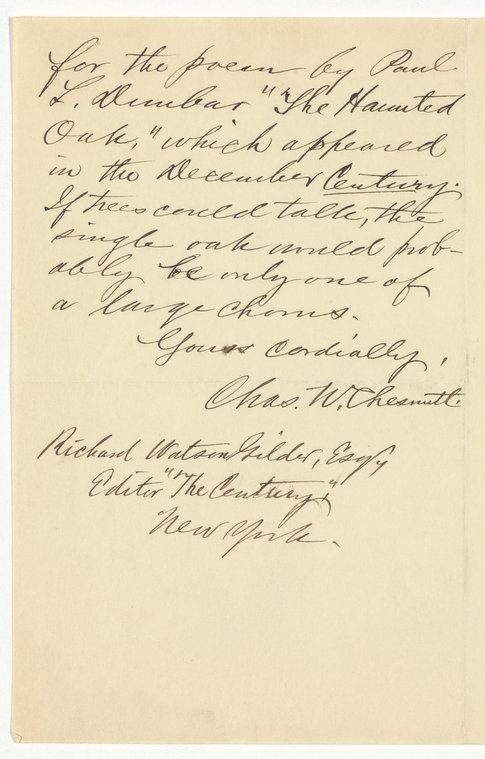 for the poem by Paul
L. Dunbar "The Haunted
Oak," which appeared
in the December Century.
If trees could talk, the
single oak would prob-
ably be only one of
a large chorus.
Yours cordially,
Chas. W. Chesnutt.
Richard Watson Gilder, Esq,
Editor "The Century,"
New York.